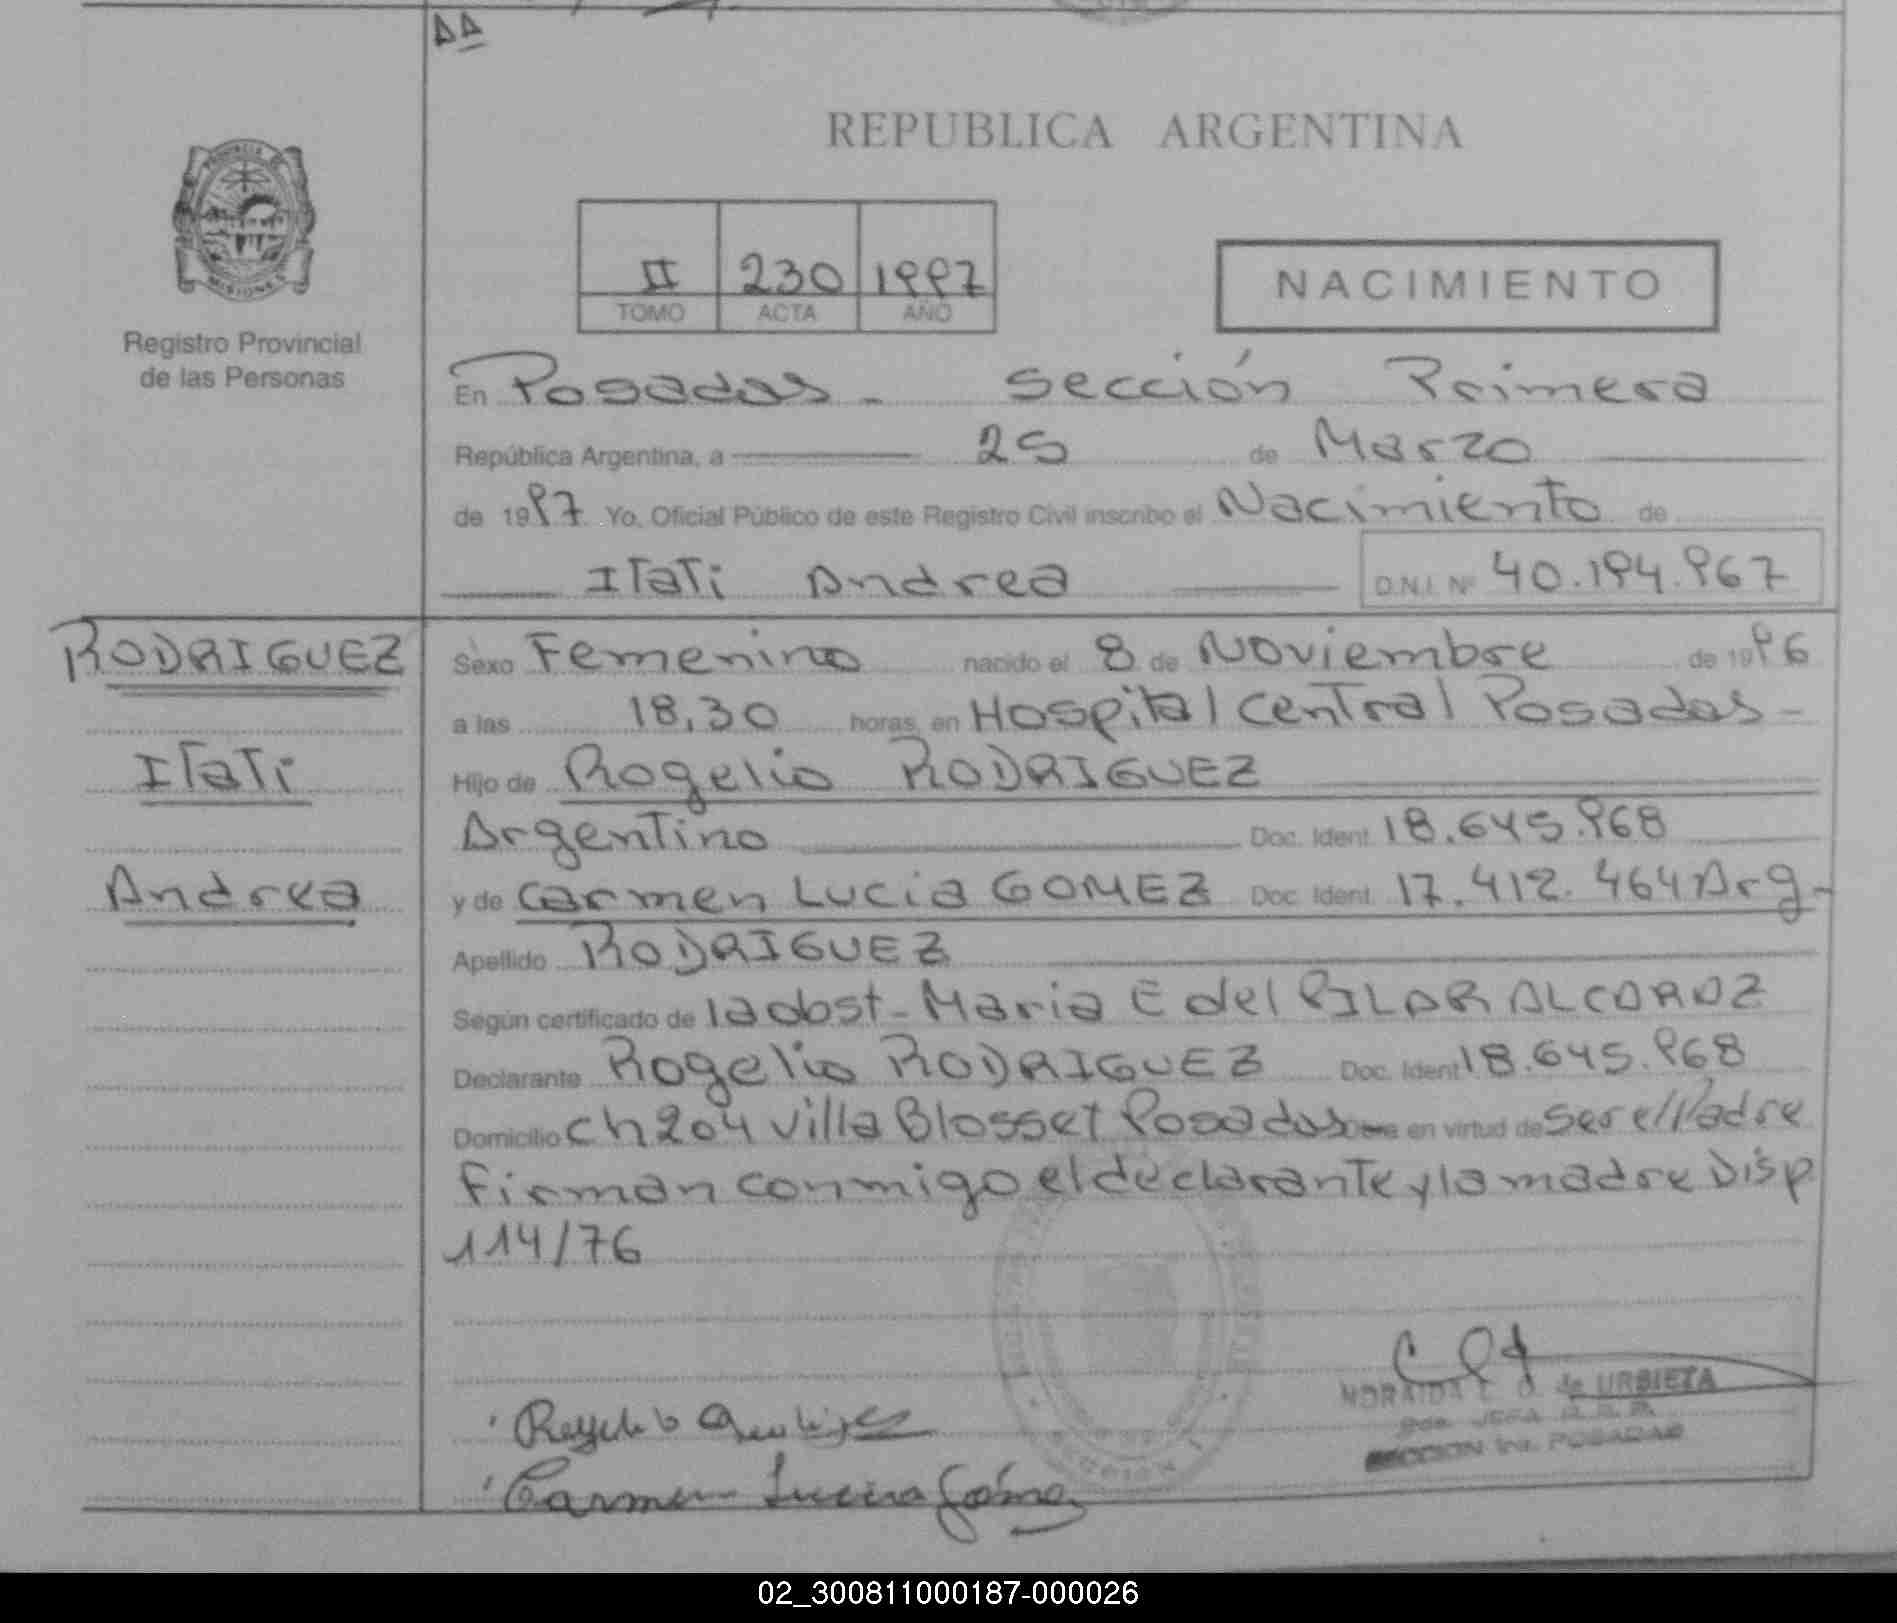 AA
REPUBLICA ARGENTINA
II 230 1997
TOMO ACTA AÑO
NACIMIENTO
PROVINCIA DE
MISIONES
Registro Provincial
de las Personas
En Posadas - Sección Primera
República Argentina, a 25 de Marzo
de 1997 Yo, Oficial Público de este Registro Civil inscribo el Nacimiento de
Itati Andrea D.N.I. Nº 40.194.967
RODRIGUEZ
Itati
Andrea
Sexo Femenino nacido el 8 de Noviembre de 1996
a las 18,30 horas, en Hospital Central Posadas -
Hijo de Rogelio RODRIGUEZ
Argentino Doc. Ident. 18.645.968
y de Carmen Lucia GOMEZ Doc. Ident. 17.412.464 Arg-
Apellido RODRIGUEZ
Según certificado de la obst- Maria E del PILAR ALCARAZ
Declarante Rogelio RODRIGUEZ Doc. Ident 18.645.968
Domicilio Ch 204 Villa Blosset Posadas en virtud de Ser el Padre
Firman conmigo el declarante y la madre Disp
114/76
Carmen Lucia Gómez
de URBIETA
JEFA
SECCION 1ra. POSADAS
02_300811000187-000026